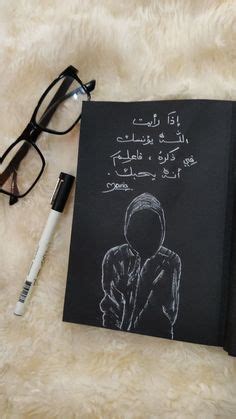 إذا رأيت
الله يؤنسك
في ذكره ، فاعلم
أنه يحبك .
Maria